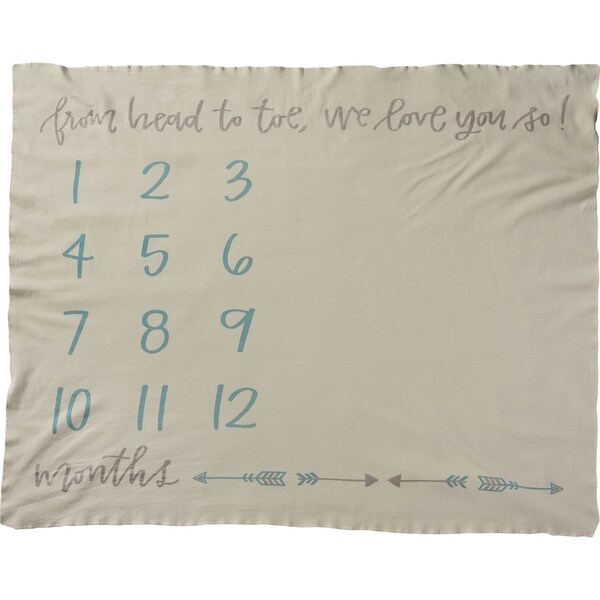 from head to toe, we love you so!
1 2 3
4 5 6
7 8 9
10 11 12
months